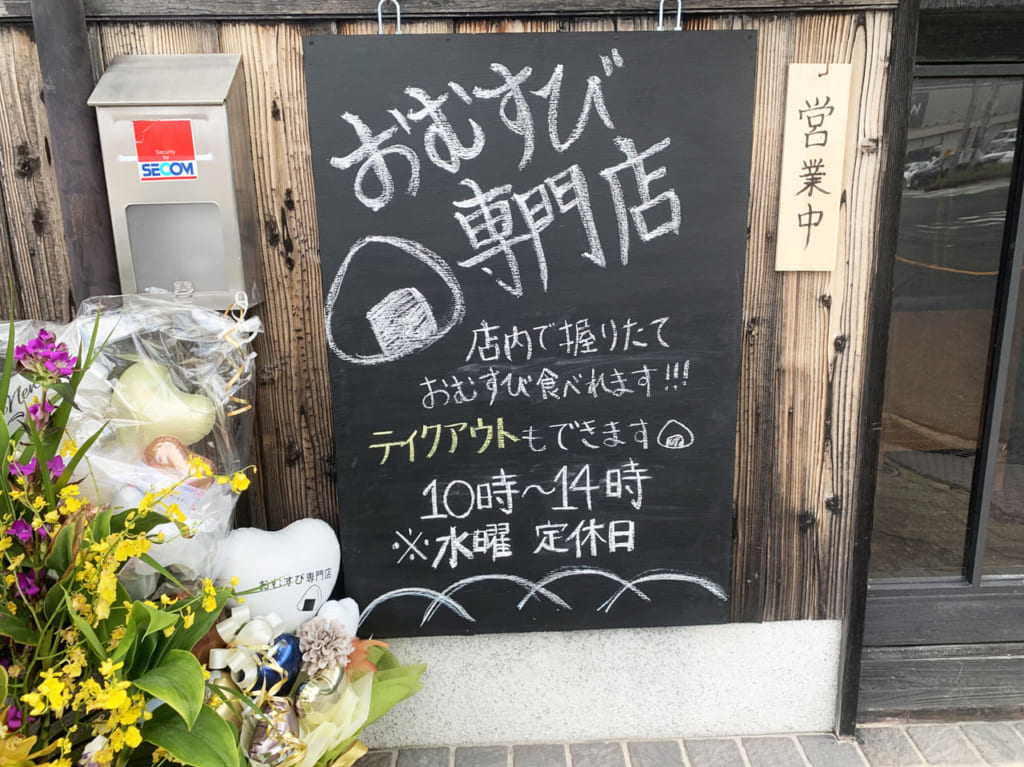 おむすび
専門店
店内で握りたて
おむすび食べれます!!!
テイクアウトもできます
10時〜14時
※水曜 定休日
営業中
Security
by
SECOM
New
おむすび専門店